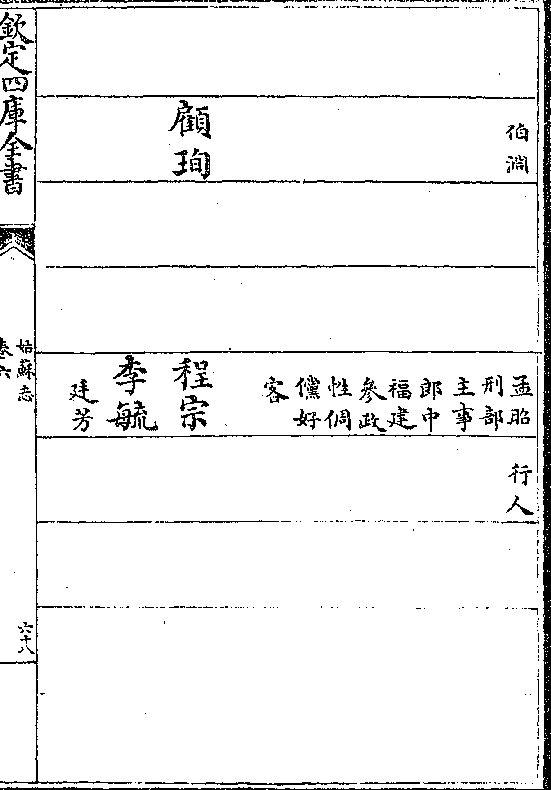 伯淵
顧珣
孟昭
刑部
主事
郎中
福建
參政
性倜
儻好
客
程宗
李毓
廷芳
行人
欽定四庫全書
姑蘇志
卷六
六十八